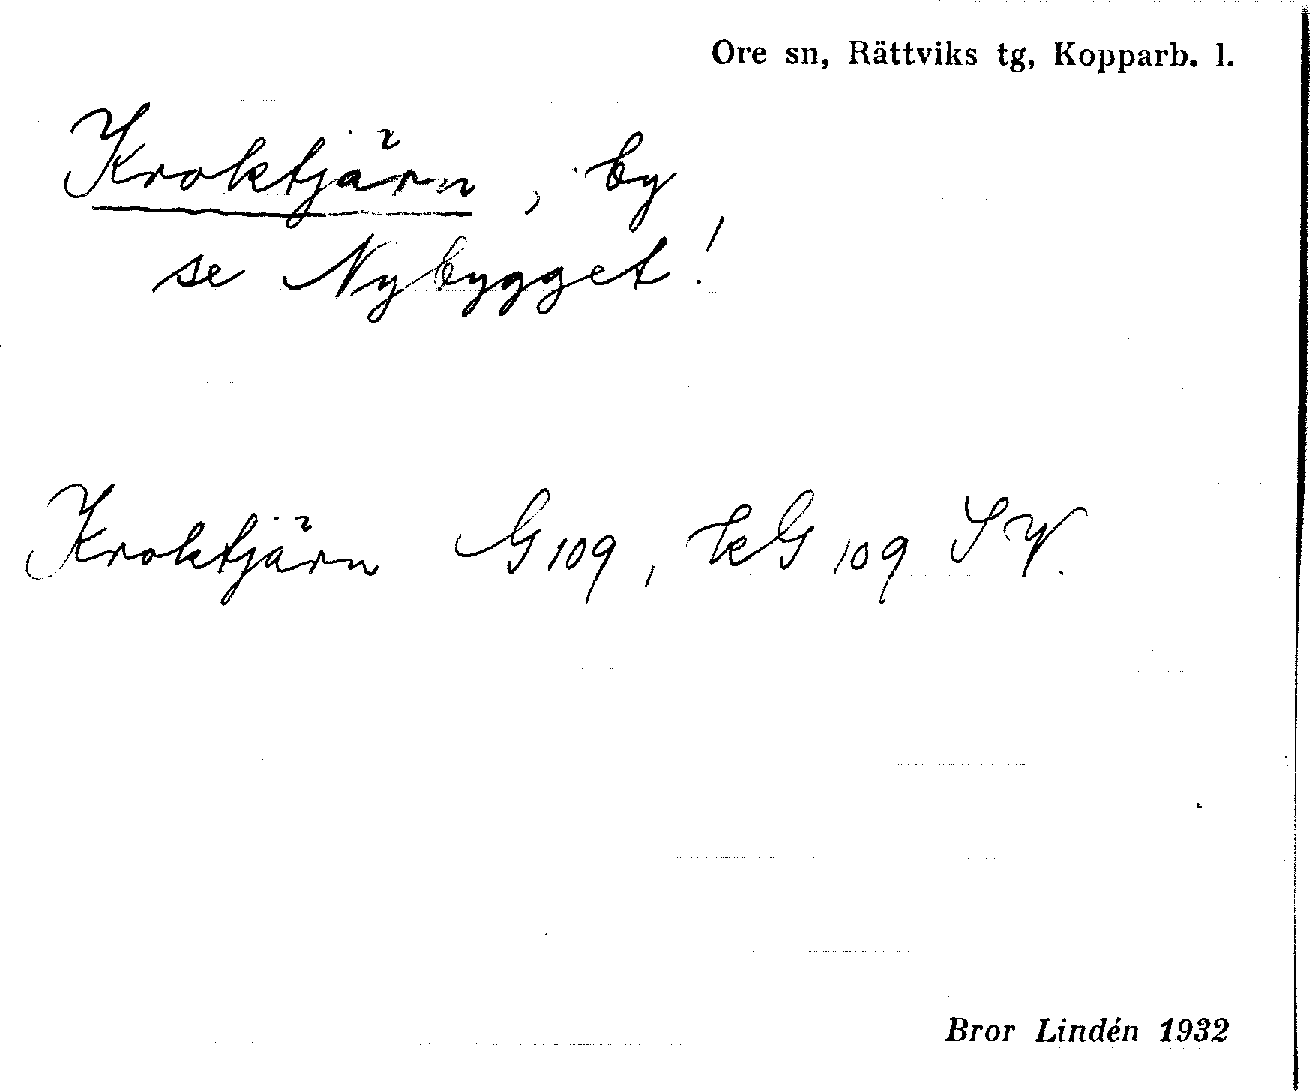 Ore sn, Rättviks tg, Kopparb. l.
Kroktjärn, by
se Nybygget!
Kroktjärn G 109, kG 109 SV.
Bror Lindén 1932